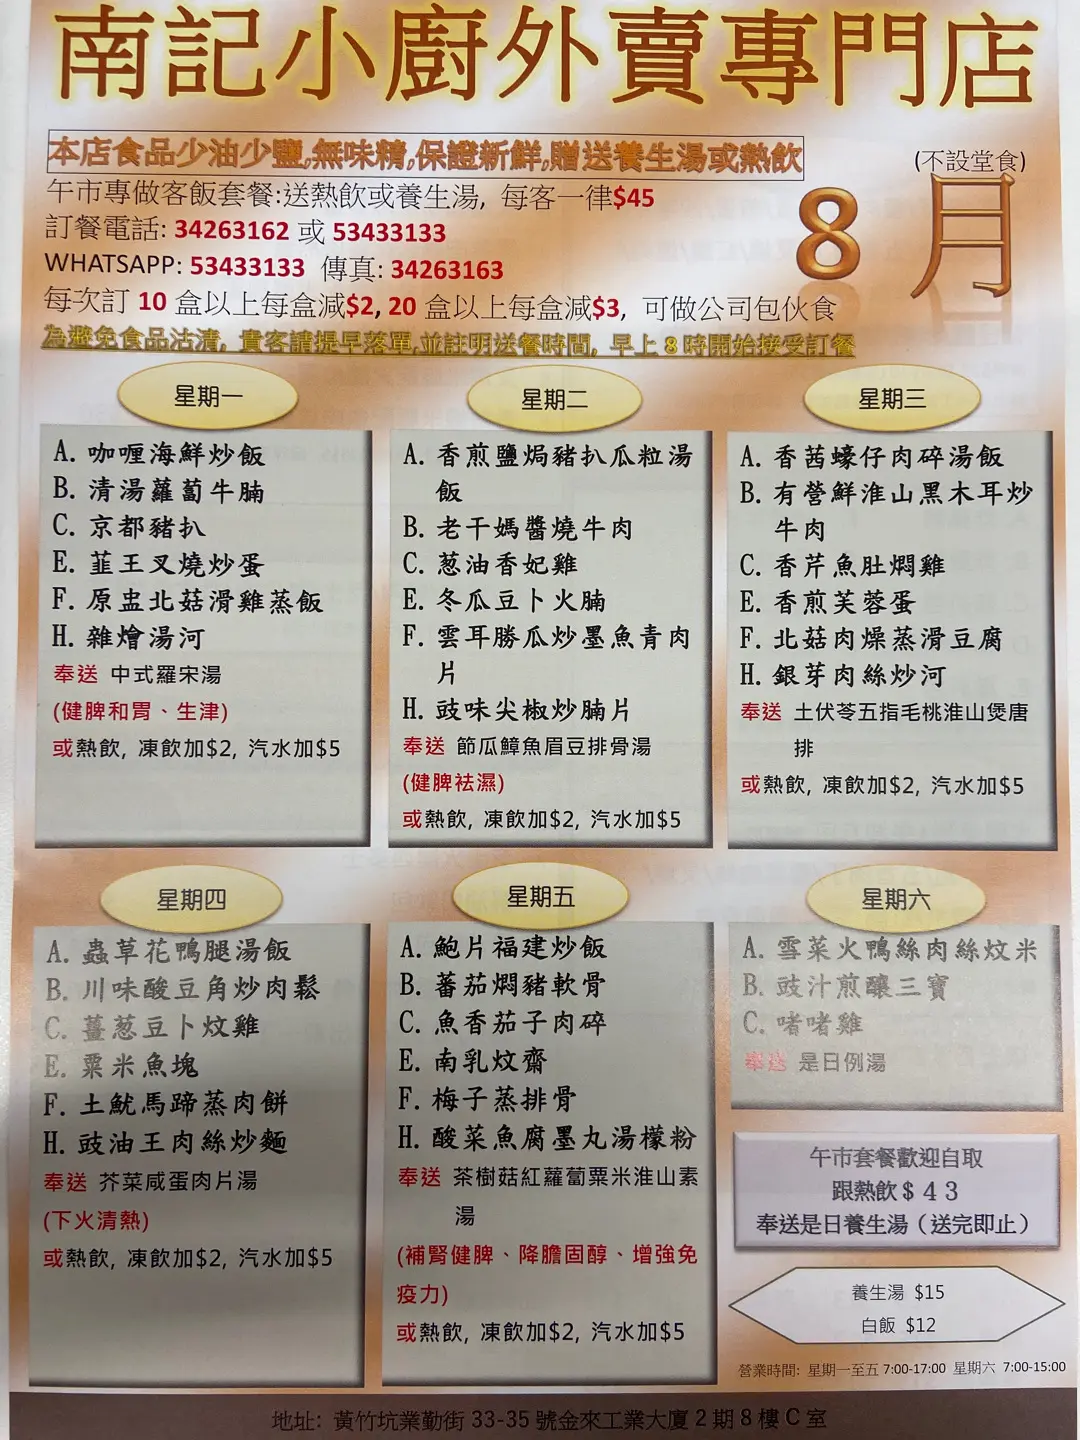 南記小廚外賣專門店
本店食品少油少鹽,無味精,保證新鮮,贈送養生湯或熱飲
(不設堂食)
午市專做客飯套餐:送熱飲或養生湯, 每客一律$45
8月
訂餐電話: 34263162 或 53433133
WHATSAPP: 53433133 傳真: 34263163
每次訂 10 盒以上每盒減$2, 20 盒以上每盒減$3, 可做公司包伙食
為避免食品沽清, 貴客請提早落單,並註明送餐時間, 早上 8 時開始接受訂餐
星期一
A. 咖喱海鮮炒飯
B. 清湯蘿蔔牛腩
C. 京都豬扒
E. 韮王叉燒炒蛋
F. 原盅北菇滑雞蒸飯
H. 雜燴湯河
奉送 中式羅宋湯
(健脾和胃、生津)
或熱飲, 凍飲加$2, 汽水加$5
星期二
A. 香煎鹽焗豬扒瓜粒湯
飯
B. 老干媽醬燒牛肉
C. 葱油香妃雞
E. 冬瓜豆卜火腩
F. 雲耳勝瓜炒墨魚青肉
片
H. 豉味尖椒炒腩片
奉送 節瓜鱆魚眉豆排骨湯
(健脾袪濕)
或熱飲, 凍飲加$2, 汽水加$5
星期三
A. 香茜蠔仔肉碎湯飯
B. 有營鮮淮山黑木耳炒
牛肉
C. 香芹魚肚燜雞
E. 香煎芙蓉蛋
F. 北菇肉燥蒸滑豆腐
H. 銀芽肉絲炒河
奉送 土伏苓五指毛桃淮山煲唐
排
或熱飲, 凍飲加$2, 汽水加$5
星期四
A. 蟲草花鴨腿湯飯
B. 川味酸豆角炒肉鬆
C. 薑葱豆卜炆雞
E. 粟米魚塊
F. 土魷馬蹄蒸肉餅
H. 豉油王肉絲炒麵
奉送 芥菜咸蛋肉片湯
(下火清熱)
或熱飲, 凍飲加$2, 汽水加$5
星期五
A. 鮑片福建炒飯
B. 蕃茄燜豬軟骨
C. 魚香茄子肉碎
E. 南乳炆齋
F. 梅子蒸排骨
H. 酸菜魚腐墨丸湯檬粉
奉送 茶樹菇紅蘿蔔粟米淮山素
湯
(補腎健脾、降膽固醇、增強免
疫力)
或熱飲, 凍飲加$2, 汽水加$5
星期六
A. 雪菜火鴨絲肉絲炆米
B. 豉汁煎釀三寶
C. 啫啫雞
奉送 是日例湯
午市套餐歡迎自取
跟熱飲＄４３
奉送是日養生湯（送完即止）
養生湯 $15
白飯 $12
營業時間: 星期一至五 7:00-17:00 星期六 7:00-15:00
地址: 黃竹坑業勤街 33-35 號金來工業大廈 2 期 8 樓 C 室